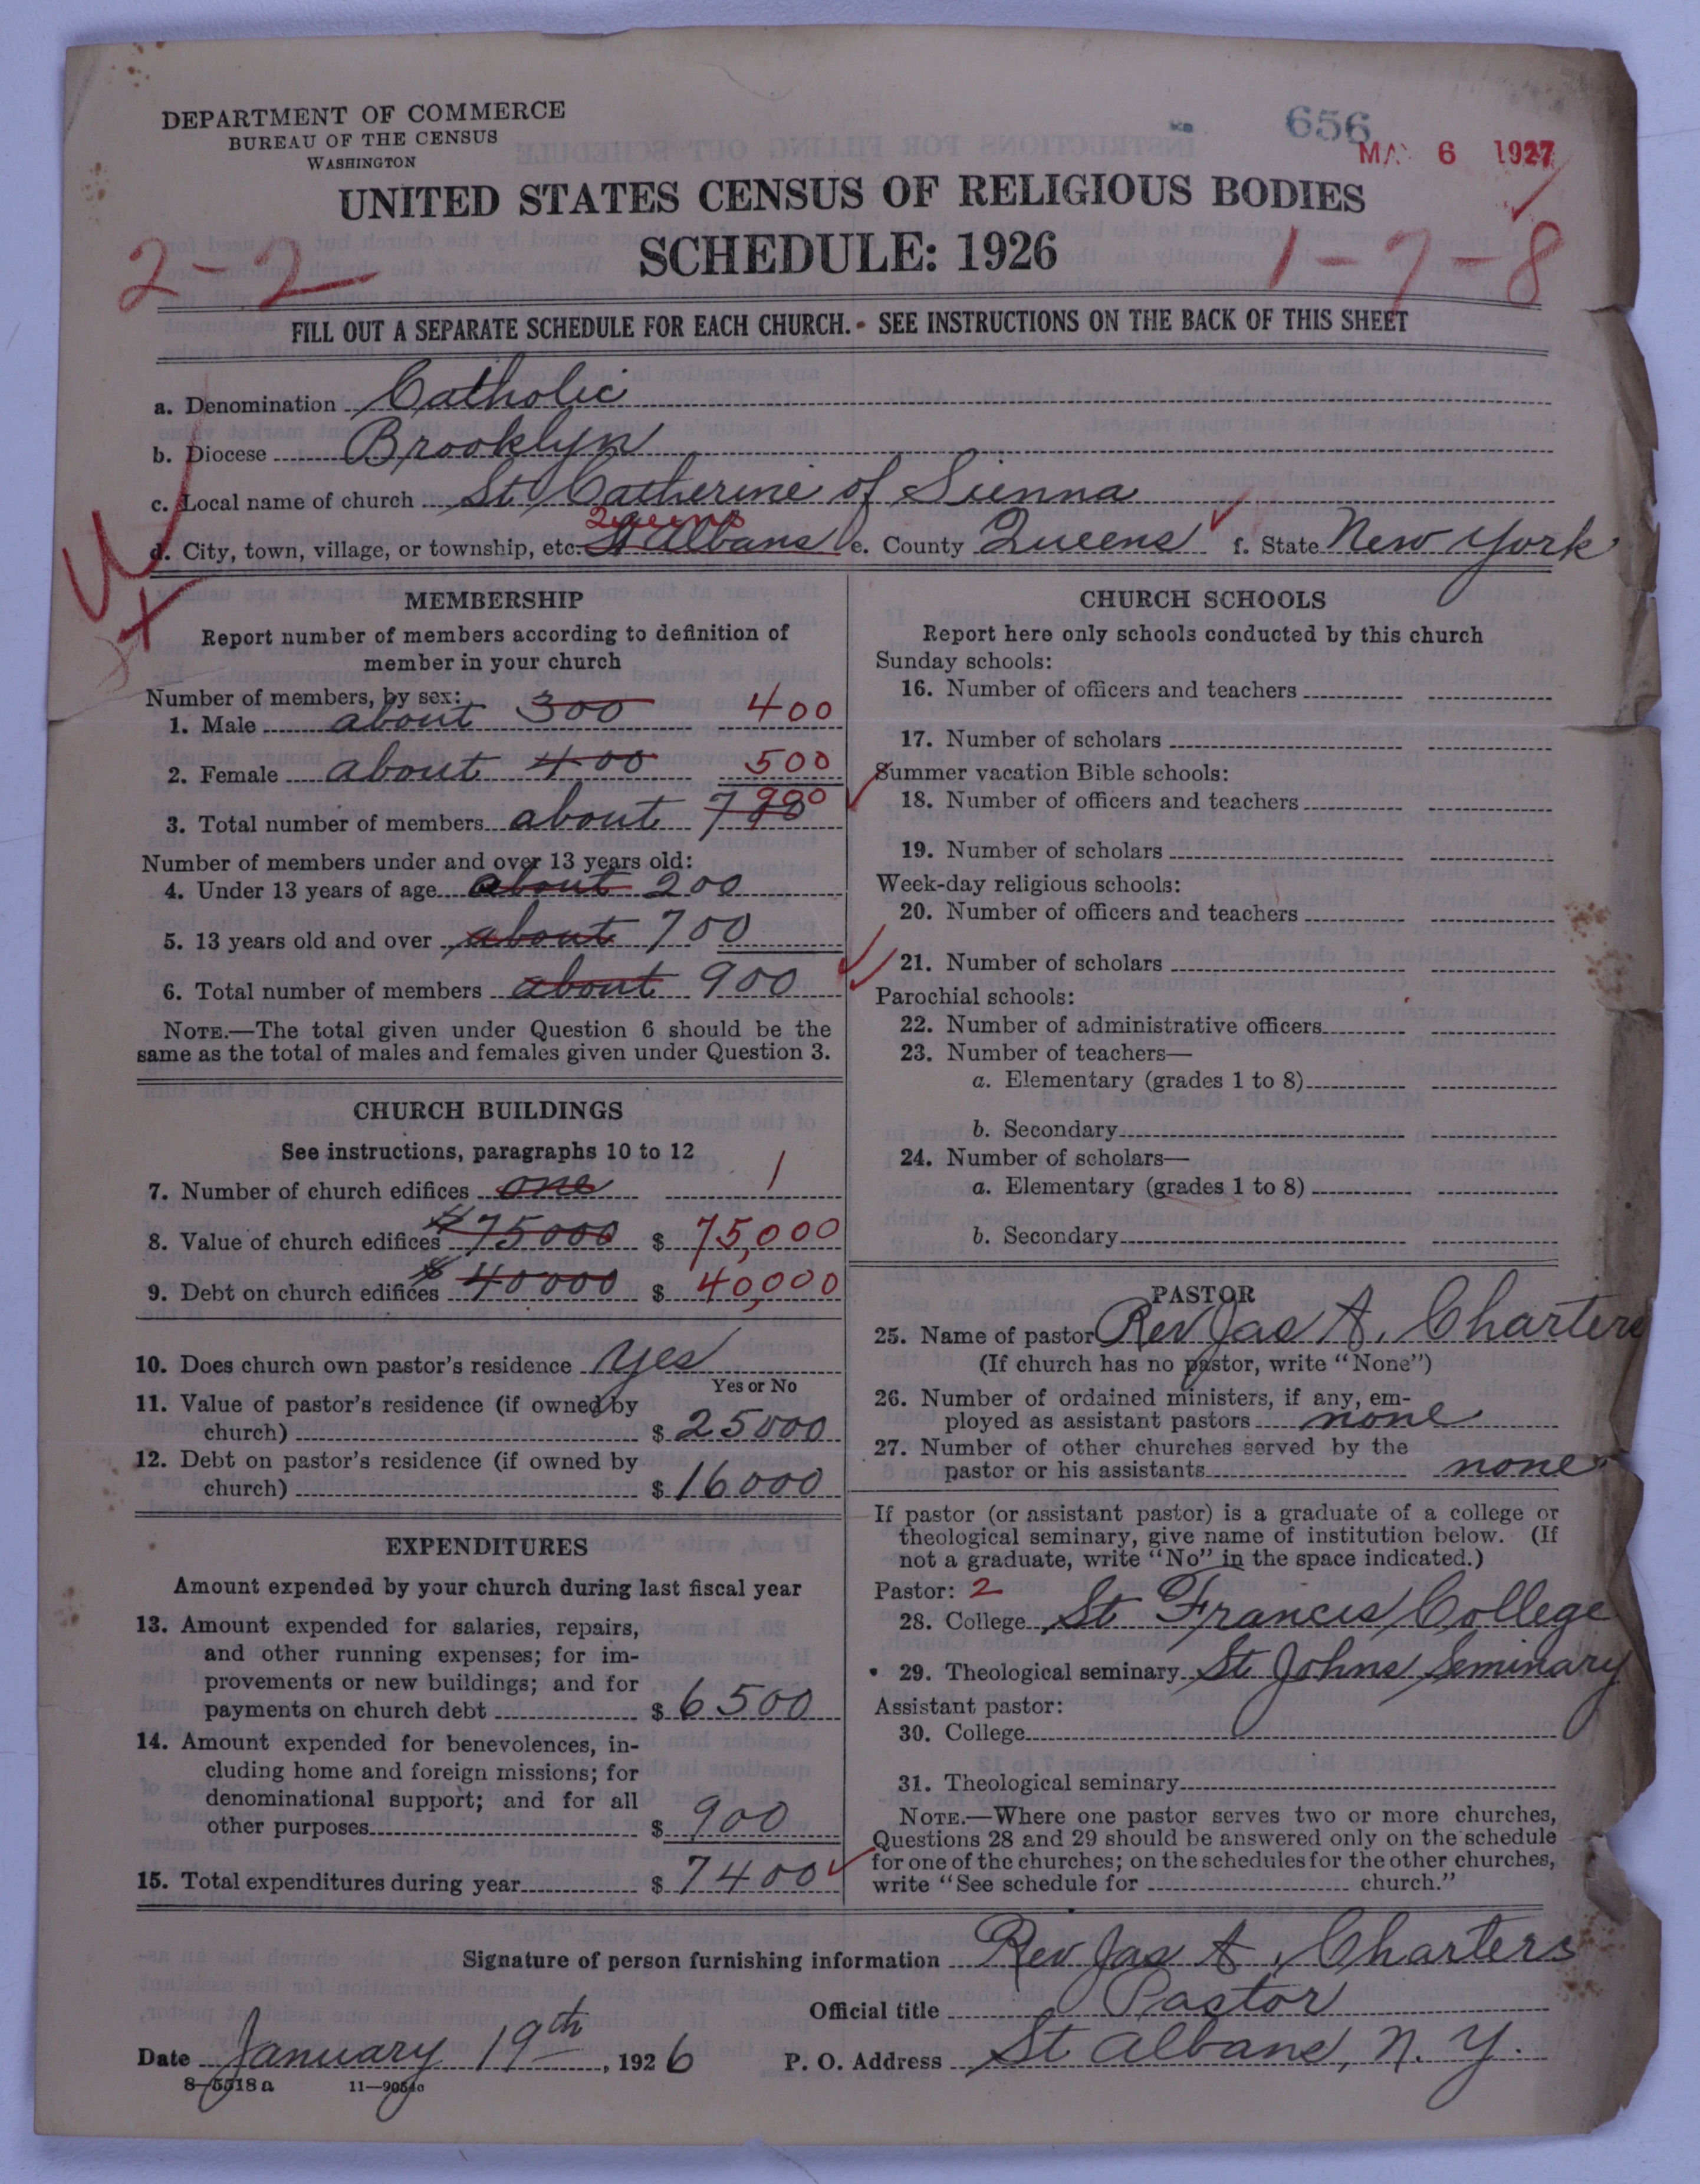 DEPARTMENT OF COMMERCE
BUREAU OF THE CENSUS
WASHINGTON
656
MA 6 1927
UNITED STATES CENSUS OF RELIGIOUS BODIES
SCHEDULE: 1926
2-2
1-7-8
FILL OUT A SEPARATE SCHEDULE FOR EACH CHURCH. - SEE INSTRUCTIONS ON THE BACK OF THIS SHEET
a. Denomination Catholic
b. Diocese Brooklyn
c. Local name of church St Catherine of Sienna
Queens
d. City, town, village, or township, etc. St Albans e. County Queens f. State New York
MEMBERSHIP
Report number of members according to definition of
member in your church
Number of members, by sex:
1. Male about 300 400
2. Female about 400 500
3. Total number of members about 700 900
Number of members under and over 13 years old:
4. Under 13 years of age about 200
5. 13 years old and over about 700
6. Total number of members about 900
NOTE.—The total given under Question 6 should be the
same as the total of males and females given under Question 3.
CHURCH BUILDINGS
See instructions, paragraphs 10 to 12
7. Number of church edifices one 1
8. Value of church edifices $75000 $ 75,000
9. Debt on church edifices $ 40000 $ 40,000
10. Does church own pastor's residence yes
Yes or No
11. Value of pastor's residence (if owned by
church) $ 25000
12. Debt on pastor's residence (if owned by
church) $ 16000
EXPENDITURES
Amount expended by your church during last fiscal year
13. Amount expended for salaries, repairs,
and other running expenses; for im-
provements or new buildings; and for
payments on church debt $ 6500
14. Amount expended for benevolences, in-
cluding home and foreign missions; for
denominational support; and for all
other purposes $ 900
15. Total expenditures during year $ 7400
CHURCH SCHOOLS
Report here only schools conducted by this church
Sunday schools:
16. Number of officers and teachers
17. Number of scholars
Summer vacation Bible schools:
18. Number of officers and teachers
19. Number of scholars
Week-day religious schools:
20. Number of officers and teachers
21. Number of scholars
Parochial schools:
22. Number of administrative officers
23. Number of teachers—
a. Elementary (grades 1 to 8)
b. Secondary
24. Number of scholars—
a. Elementary (grades 1 to 8)
b. Secondary
PASTOR
25. Name of pastor Rev Jas A. Charters
(If church has no pastor, write "None")
26. Number of ordained ministers, if any, em-
ployed as assistant pastors none
27. Number of other churches served by the
pastor or his assistants none
If pastor (or assistant pastor) is a graduate of a college or
theological seminary, give name of institution below. (If
not a graduate, write "No" in the space indicated.)
Pastor: 2
28. College St Francis College
29. Theological seminary St Johns Seminary
Assistant pastor:
30. College
31. Theological seminary
NOTE.—Where one pastor serves two or more churches,
Questions 28 and 29 should be answered only on the schedule
for one of the churches; on the schedules for the other churches,
write "See schedule for church."
Signature of person furnishing information Rev Jas A. Charters
Official title Pastor
Date January 19th, 1926 P. O. Address St Albans, N. Y.
8—5518a 11—9054a